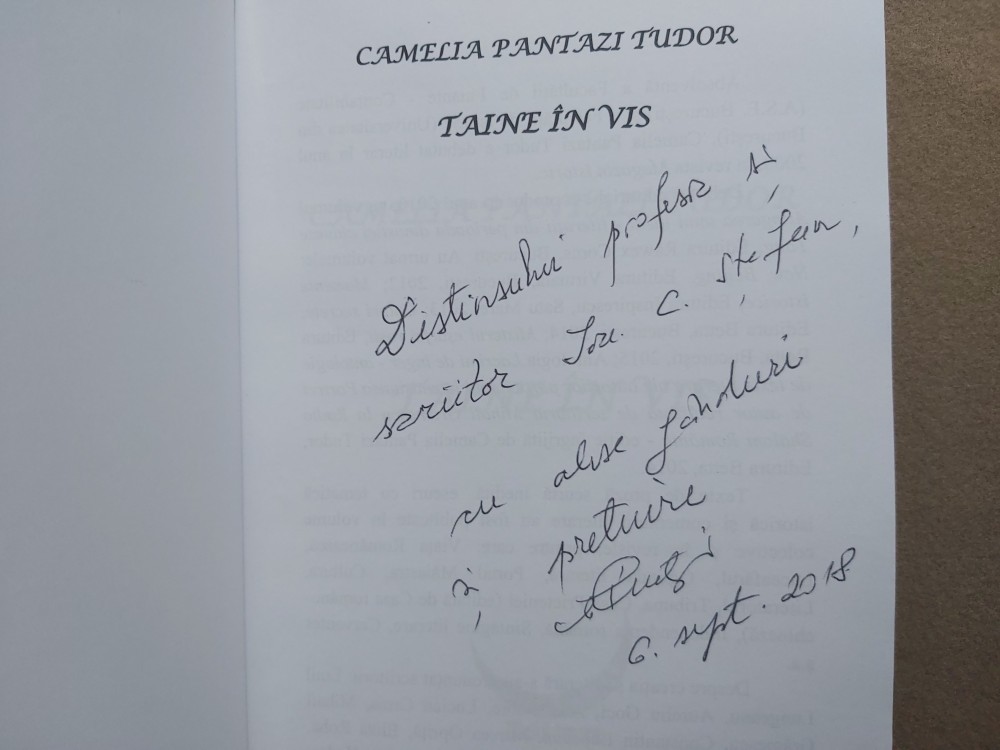 CAMELIA PANTAZI TUDOR
TAINE ÎN VIS
Distinsului profesor și
scriitor Ion C. Ștefan,
cu alese gânduri
și prețuire
6. sept. 2018